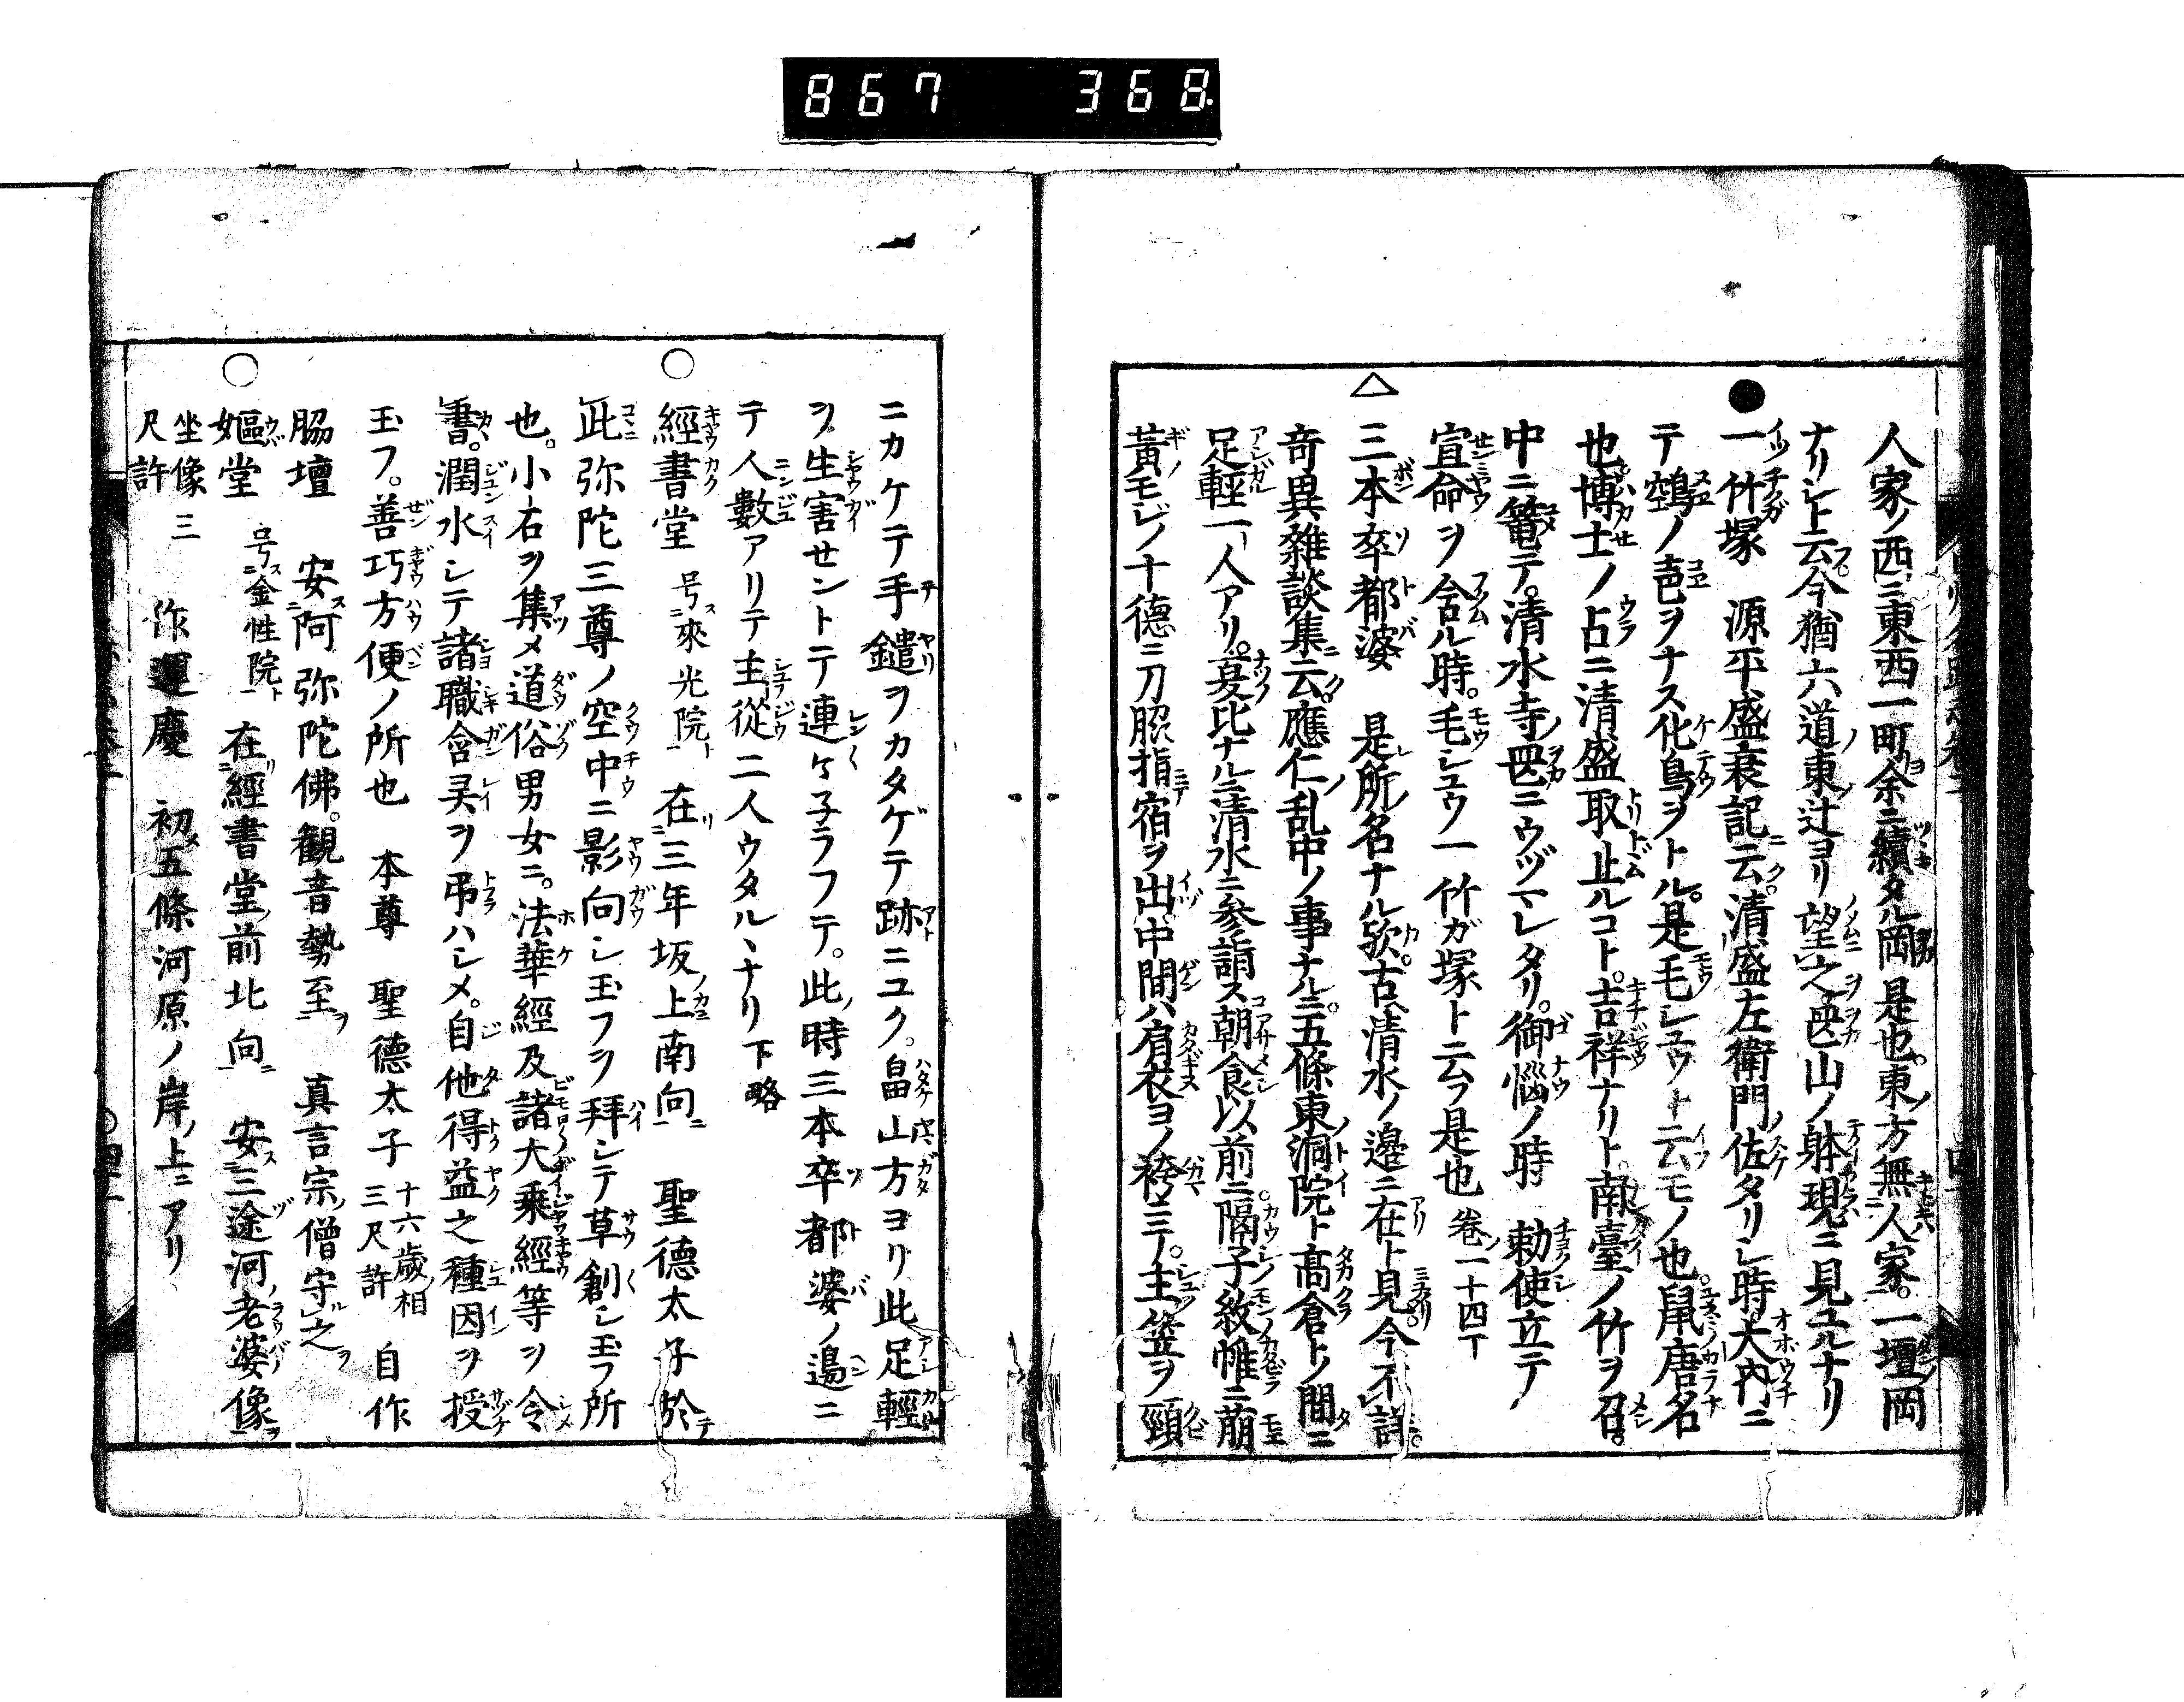 867 368
人家ノ西ニ東西一町余ニ續タル岡是也東ノ方無人家一壇岡
ナリト云今猶六道ノ東ノ辻ヨリ望之四山ノ躰現ニ見ユルナリ
●一竹塚 源平盛衰記云清盛左衛門佐タリシ時大內ニ
テ鵼ノ音ヲナス化鳥ヲトル是毛シユウト云モノ也鼠唐名
也博士ノ占ニ清盛取止ルコト吉祥ナリト南臺ノ竹ヲ召
中ニ篭テ清水寺ノ岡ニウヅマレタリ御惱ノ時 勅使立テ
宣命ヲ含ル時毛シユウ一竹ガ塚ト云フ是也 卷一十四丁
△三本卒都婆 是所ノ名ナル歟古清水ノ邊ニ在ト見今不詳
奇異雜談集云應仁ノ乱中ノ事ナルニ五條東洞院ト髙倉トノ間ニ
足輕一人アリ夏比ナルニ清水ニ参詣ス朝食以前ニ隔子紋帷ニ萠
黃モジノ十德ニ刀脇指宿ヲ出中間ハ肩衣ヨノ袴ニテ主笠ヲ頸
ニカケテ手鑓ヲカタゲテ跡ニユク畠山方ヨリ此足輕
ヲ生害セントテ連々子ラフテ此時三本卒都婆ノ邊ニ
テ人數アリテ主從二人ウタルヽナリ 下略
○經書堂 号ス來光院ト 在三年坂ノ上南向 聖德太子於
此弥陀三尊ノ空中ニ影向シ玉フヲ拜シテ草創シ玉フ所
也小石ヲ集メ道俗男女ニ法華經及諸大乘經等ヲ令
書潤水シテ諸職含灵ヲ弔ハシメ自他得益之種因ヲ授
玉フ善巧方便ノ所也 本尊 聖德太子 十六歲相 三尺許 自作
脇壇 安阿弥陀佛觀音勢至 真言宗僧守之
○嫗堂 号ス金性院ト 在經書堂前北向 安三途河老婆像
坐像三尺許 作運慶 初五條河原ノ岸ノ上ニアリ